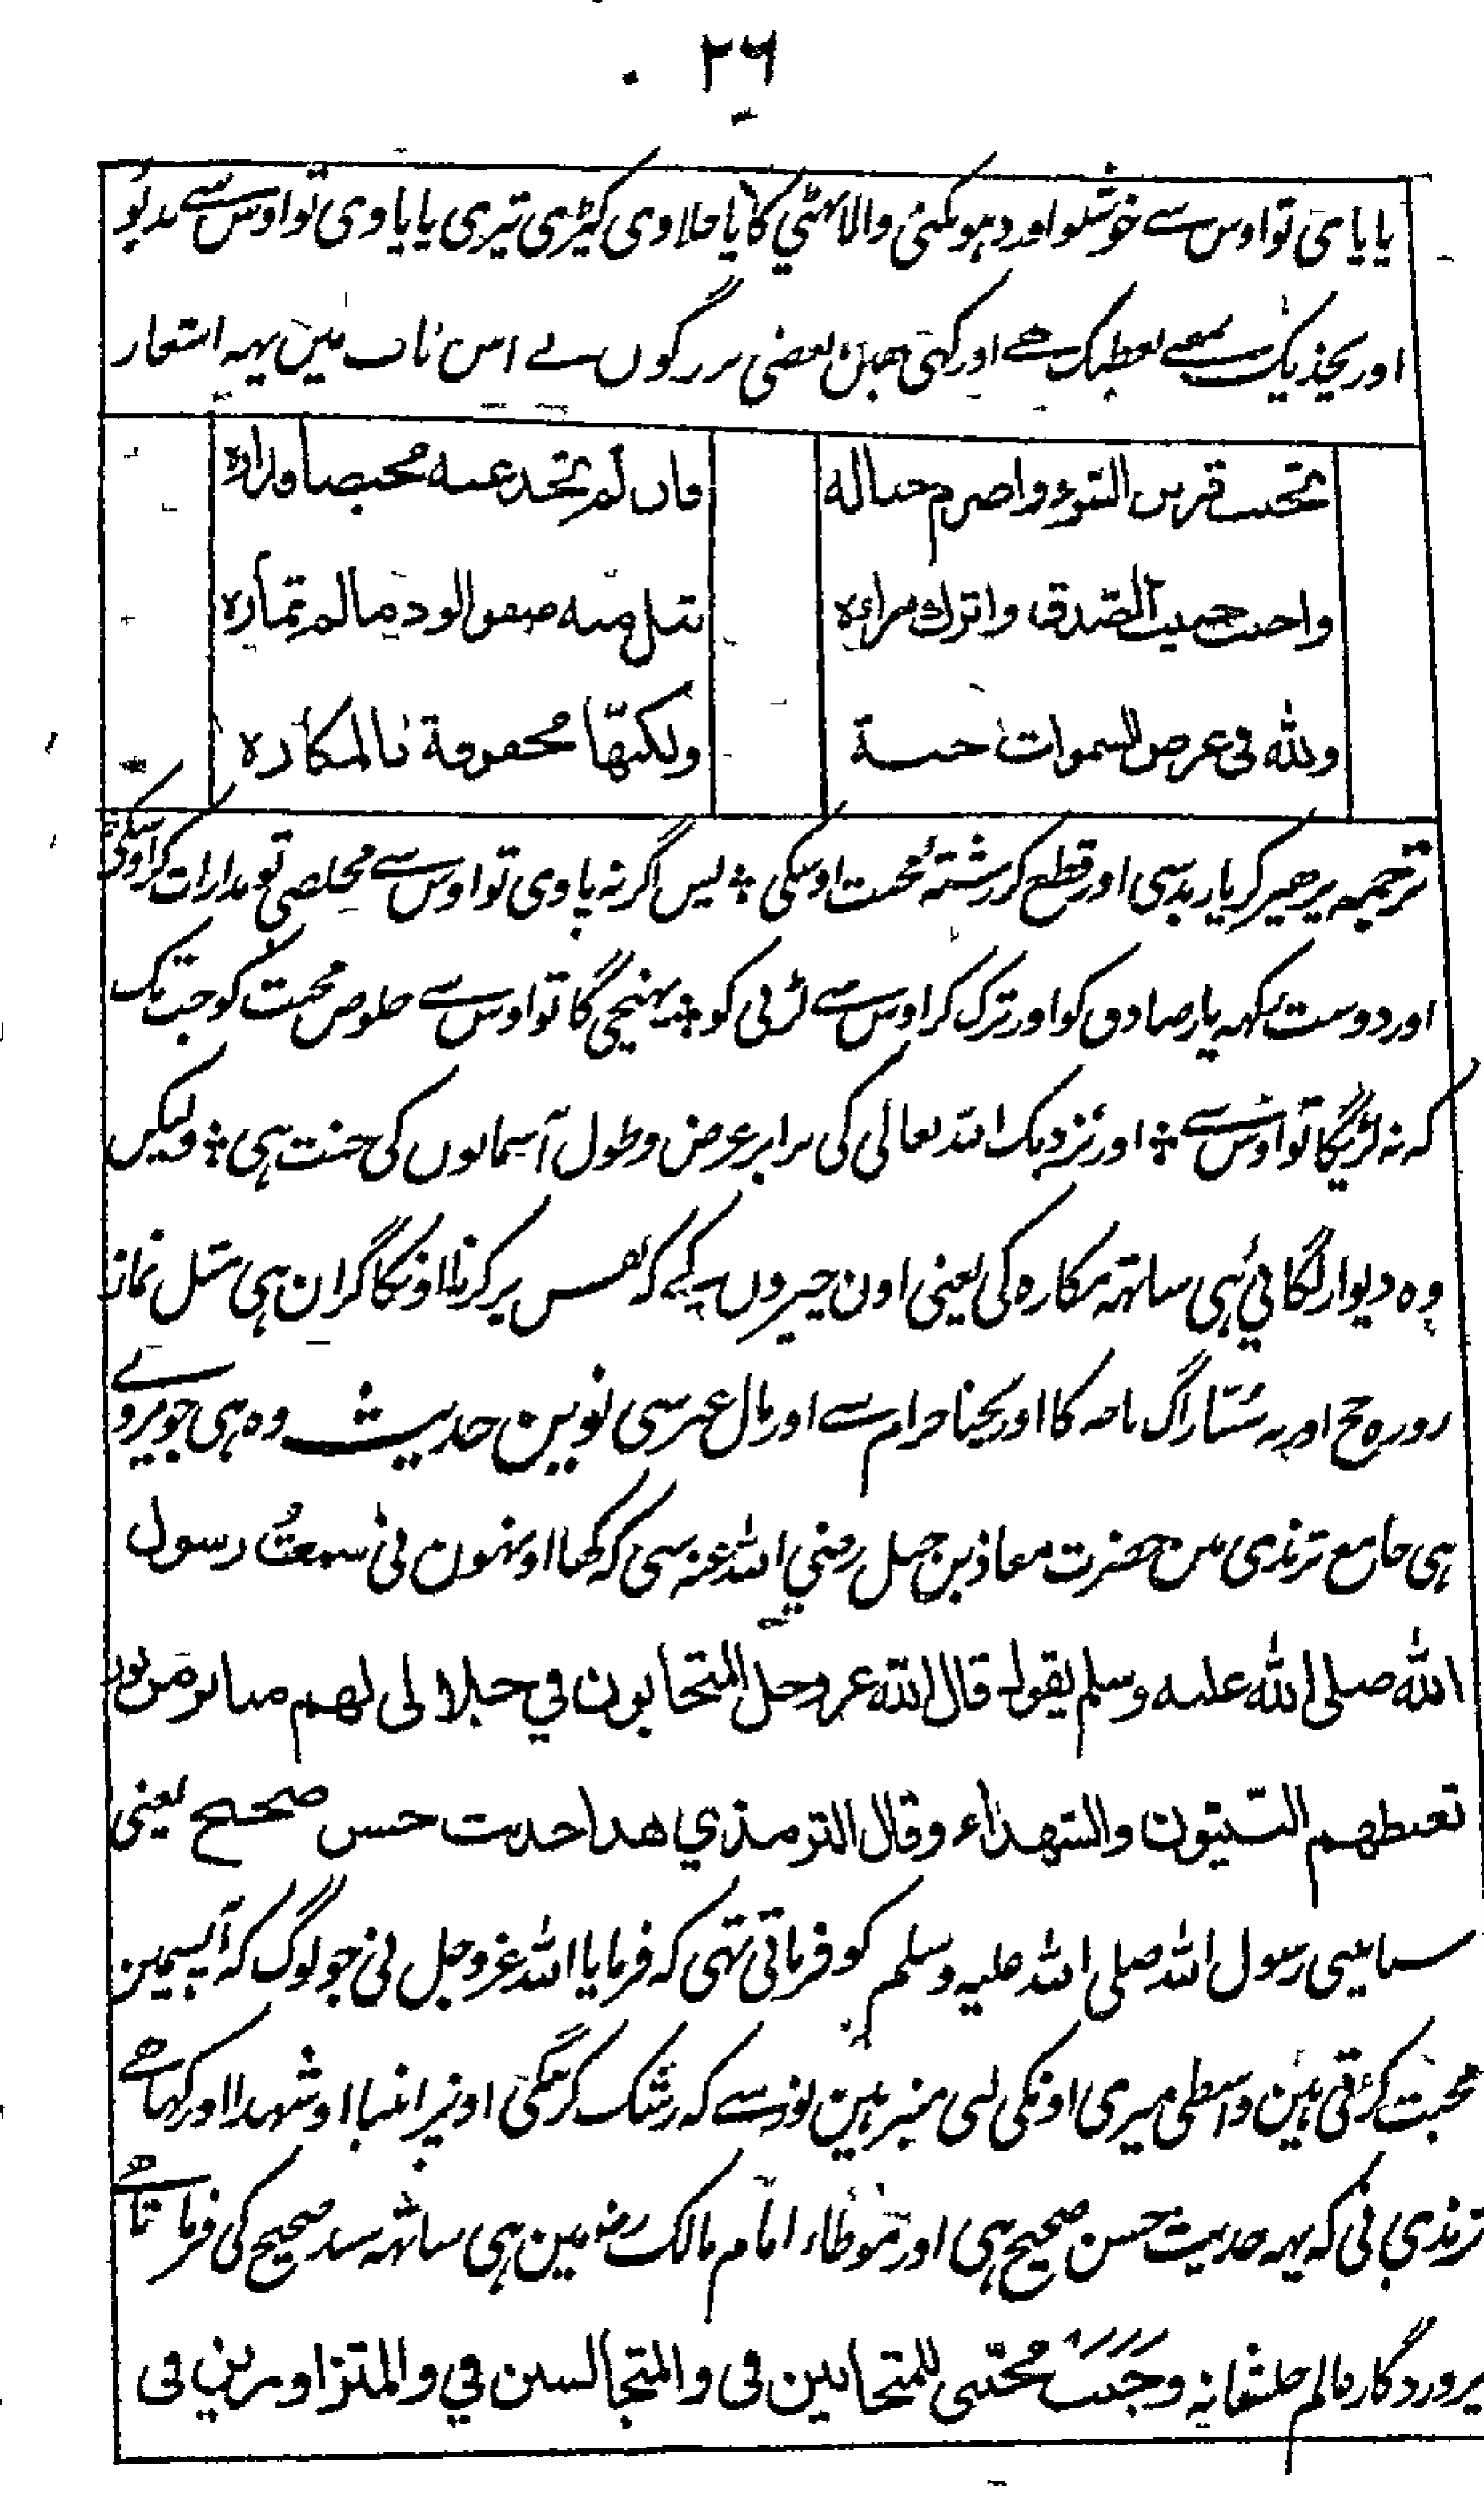 ۲۶
یا پاسی تو اوس سے خوشبو اور دہونکنی والا بہٹی کا یا جلاوی کپڑی تیری یا پاوی تو اوس سے بدبو
اور یحذیک بمعنی یعطیک ہے اور کہی ہین بعضی بزرگوں نے اس باب میں یہہ اشعار
تجنب قرین السوء واصرم حباله
فان لم تجد عنه محیصا فداره
واحبب حبیب الصدق واترك مراءه
تنل منه صفو الود ما لم تماره
ولله فی عرض السموات جنة
ولکنها محفوفة بالمکاره
ترجمہ پرہیز کر یار بدسی اور قطع کر رشتہ محبت اوسکی ؞ پس اگر نہ پاوی تو اوس سے مخلصی تو مدارات کر اوسکی
اور دوست رکہہ یار صادق کو اور ترک کر اوس سے لڑنی کو ؞ پہنچی گا تو اوس سے خلوص محبت کو جب تک
کہ نہ لڑیگا تو اوس سے ؞ اور نزدیک اللہ تعالی کی برابر عرض و طول آسمانوں کی جنت ہی ؞ ولیکن
وہ دیوار لگائی ہی ساتہہ مکارہ کی یعنی اون چیزوں کے کہ نفس پر کرنا اونکا گران ہی مثل نماز
روزہ حج اور نہ سننا راگ باجہ کا اور بچنا حرام سے اور مال غیر سی نوین حدیث وہ ہی جو مروے
ہی جامع ترمذی مین حضرت معاذ بن جبل رضي الله عنہ سی کہ کہا اونہون نی سمعتُ رسول
الله صلی الله علیه وسلم یقول قال الله عز وجل المتحابون في جلالی لهم منابر من نور
تغبطهم النبیون والشهداء وقال الترمذي هذا حدیث حسن صحیح یعنی
سنا مینی رسول الله صلی الله علیہ وسلم کو فرماتی تہی کہ فرمایا الله عز وجل نی جو لوگ کہ آپسمین
محبت کرتی ہین واسطی میری اونکی لئی منبر ہین نور سے کہ رشک کرینگی اونپر انبیا اور شہدا اور کہا ہے
ترمذی نی کہ یہہ حدیث حسن صحیح ہی اور موطاء امام مالک رض مین ہی ساتہہ سند صحیح کی فرماتا ہے
پروردگار عالم جلشانہ وجبت محبتی للمتحابین فی والمتجالسین في والمتزاورین فی